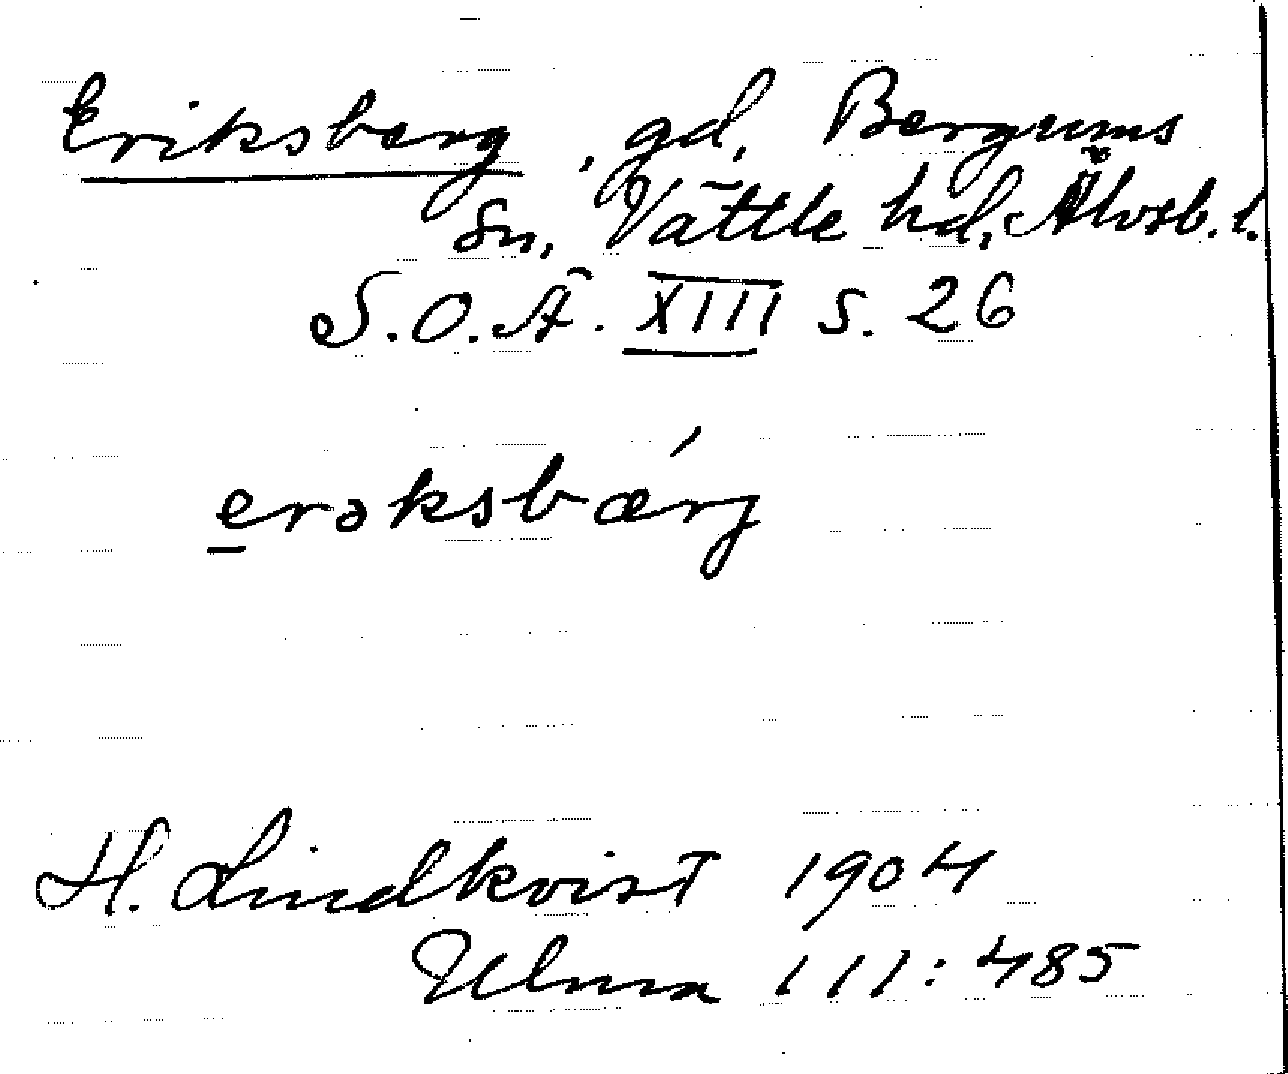 Eriksberg, gd, Bergums
Sn, Vättle hd, Älvsb. l.
S.O.Ä. XIII s. 26
erəksbǽrj
H. Lindkvist 1904
Ulma 111:485